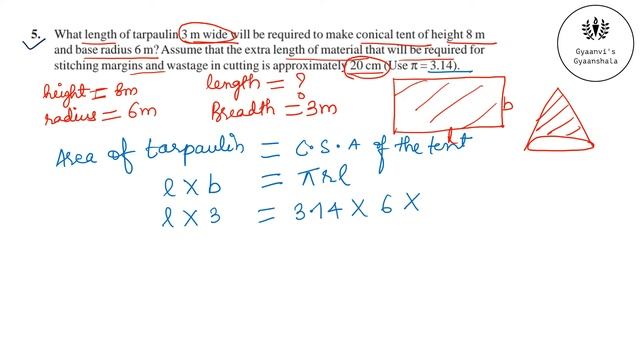 5. What length of tarpaulin 3 m wide will be required to make conical tent of height 8 m
and base radius 6 m? Assume that the extra length of material that will be required for
stitching margins and wastage in cutting is approximately 20 cm (Use π = 3.14).
Gyaanvi's
Gyaanshala
height = 8m
length = ?
radius = 6m
Breadth = 3m
b
l
Area of tarpaulin = C.S.A of the tent
l × b = πrl
l × 3 = 3.14 × 6 ×